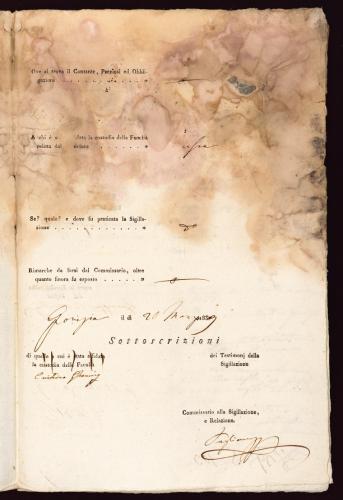 Ove si trova il Contante, Preziosi ed Obbli-
gazioni . . . . . . . . . . . . »
A chi è data la custodia della Facoltà
relata dal . . . . . . . . »
Se? quale? e dove fu praticata la Sigilla-
zione . . . . . . . . . . . . »
Rimarche da farsi dal Commissario, oltre
quanto finora fu esposto . . . . . »
Gorizia il dì 20
Sottoscrizioni
di quello a cui è stata affidata
la custodia della Facoltà
dei Testimonj della
Sigillazione
Commissario alla Sigillazione,
e Relazione.